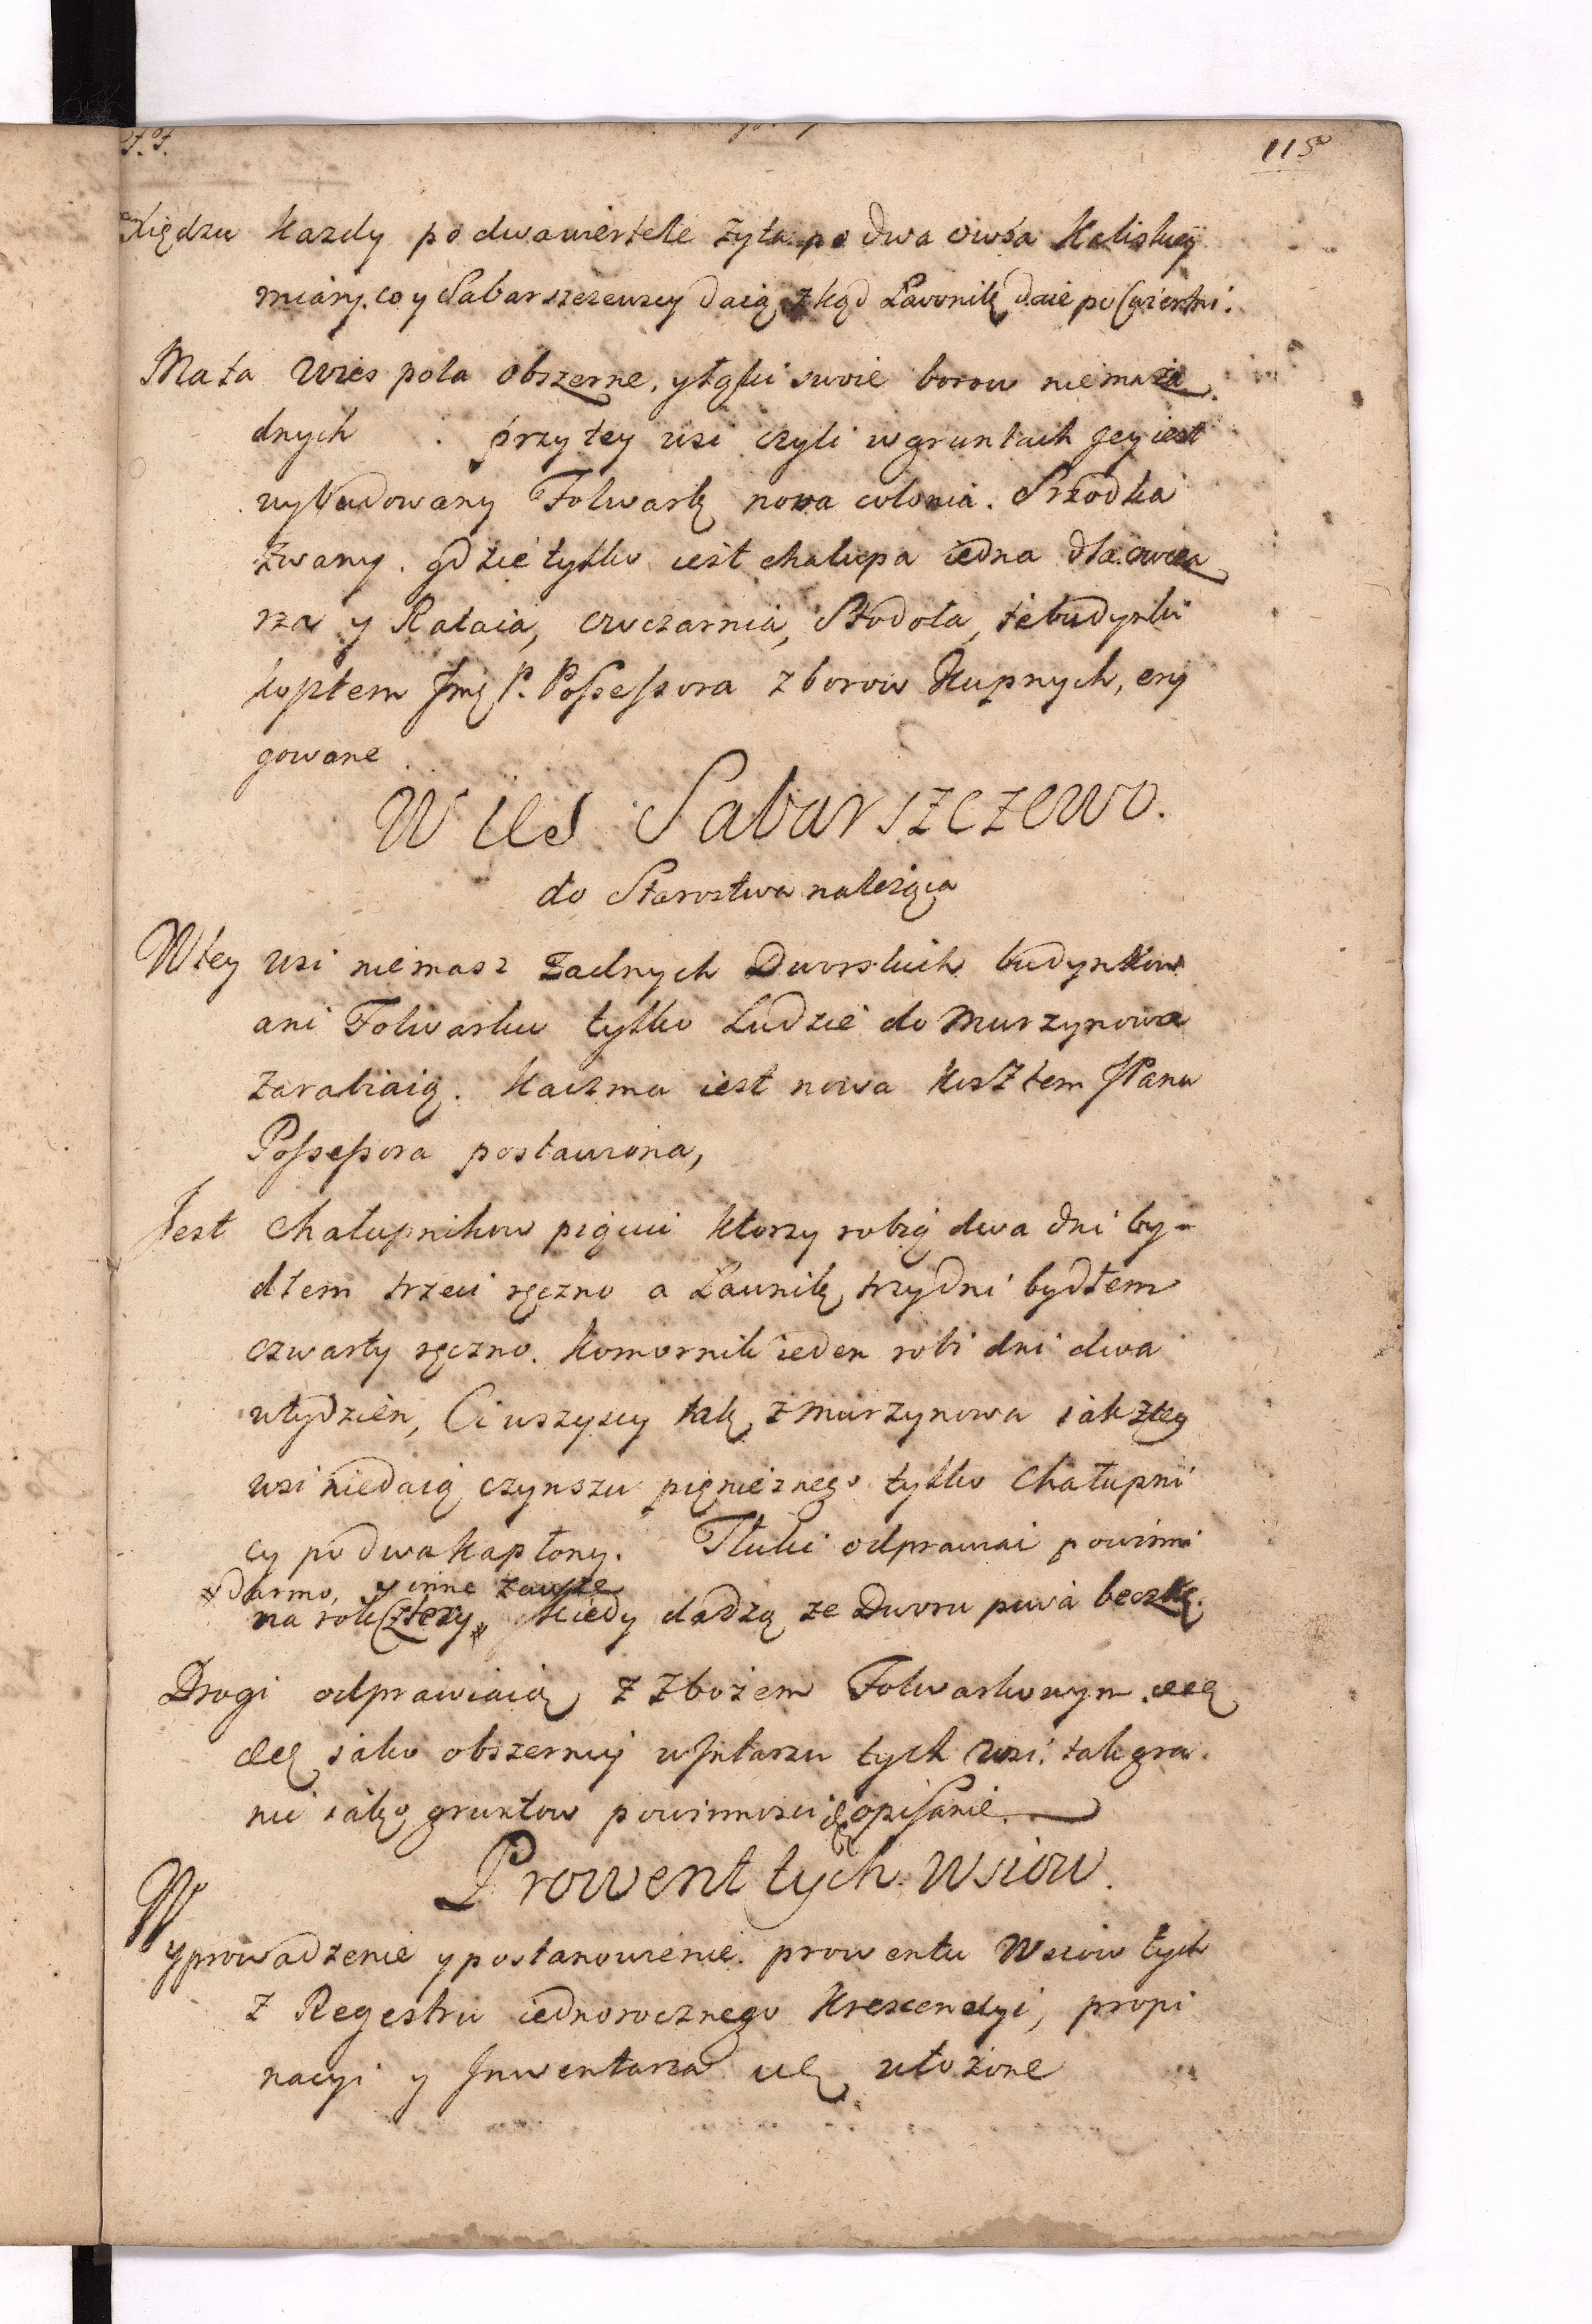 F. F.
115
Xiędzu kazdy po dwa wiertele zyta po dwa owsa Kaliskiey
miary. co y Sabarszczewscy daią zkąd Ławnik daie po ćwiertni.
Mata Wies pola obszerne, y łąki swoie borow niema ża
dnych. przy tey wsi czyli w gruntach jey iest
wybudowany Folwark nova colonia. Srzodka
zwany. gdzie tylko iest chalupa iedna dla owcza
rza y Rataia, owczarnia, Stodoła, te budynki
kosztem Jmę P. Possessora z borow Kupnych, ery
gowane
Wies Sabarszczewo.
do Starostwa należąca
W tey wsi niemasz żadnych Dworskich budynkow
ani Folwarku tylko Ludzie do Murzynowa
zarabiaią. Kaczma iest nowa kosztem JPana
Possessora postawiona,
Jest Chałupnikow pięciu ktorzy robią dwa dni by-
dłem trzeci ręczno a Ławnik trzy dni bydłem
czwarty ręczno. Komornik ieden robi dni dwa
w tydzień, Ci wszyscy tak z Murzynowa iak z tey
wsi niedaią czynszu pięnieznego tylko Chałupni
cy po dwa kapłony. Tłuki odprawiai powinni
darmo, y inne zawsze
na rok cztery kiedy dadzą ze Dworu piwa beczkę.
Drogi odprawiaią z Zbożem Folwarkowym. etc
etc iako obszerniey w Jntarzu tych wsi. tak gra
nic iako gruntow powinnosci etc opisanie.
Prowent tych Wsiow.
Wyprowadzenie y postanowienie prowentu Wsiow tych
z Regestru iednorocznego Krescencyi, propi
nacyi y Jnwentarza etc ułożone